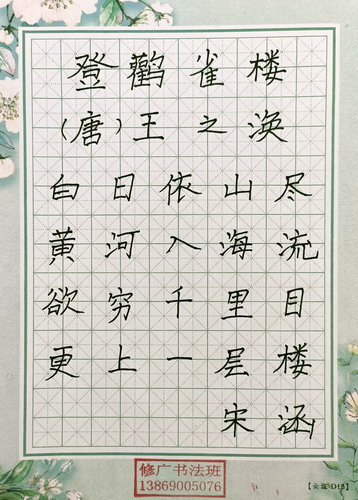 登鹳雀楼
（唐）王之涣
白日依山尽
黄河入海流
欲穷千里目
更上一层楼
宋涵
修广书法班
13869005076